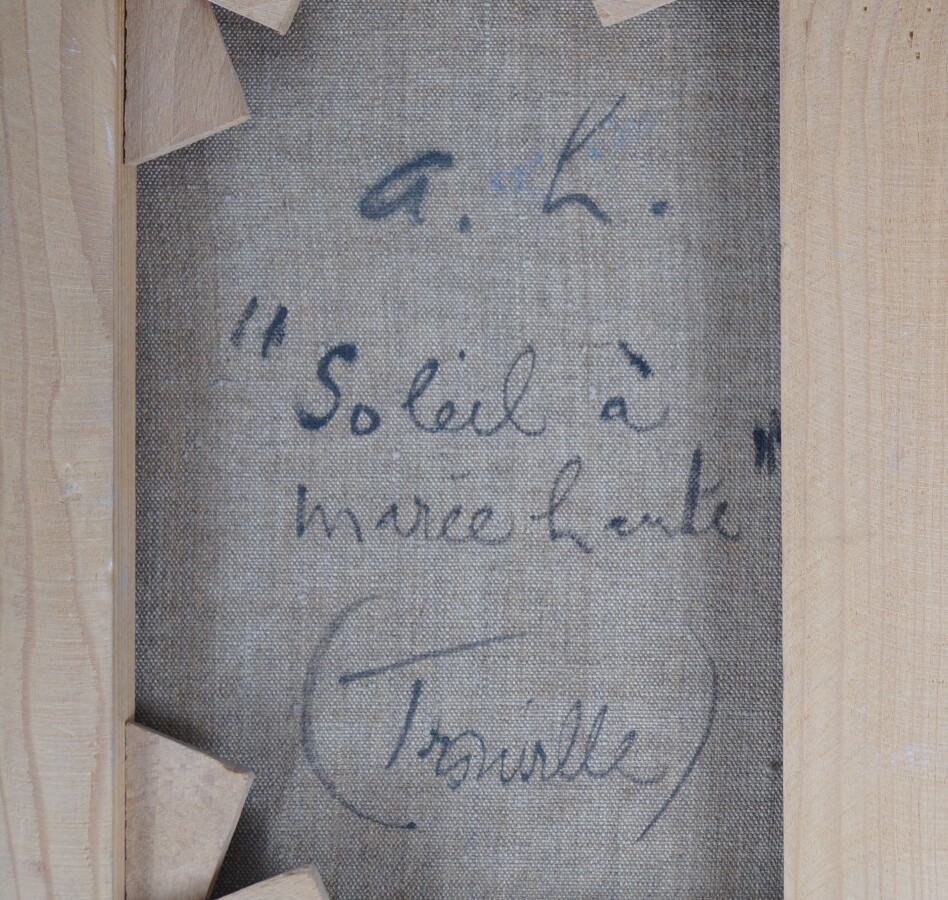 a. h.
"Soleil à
marée haute"
(Trouville)